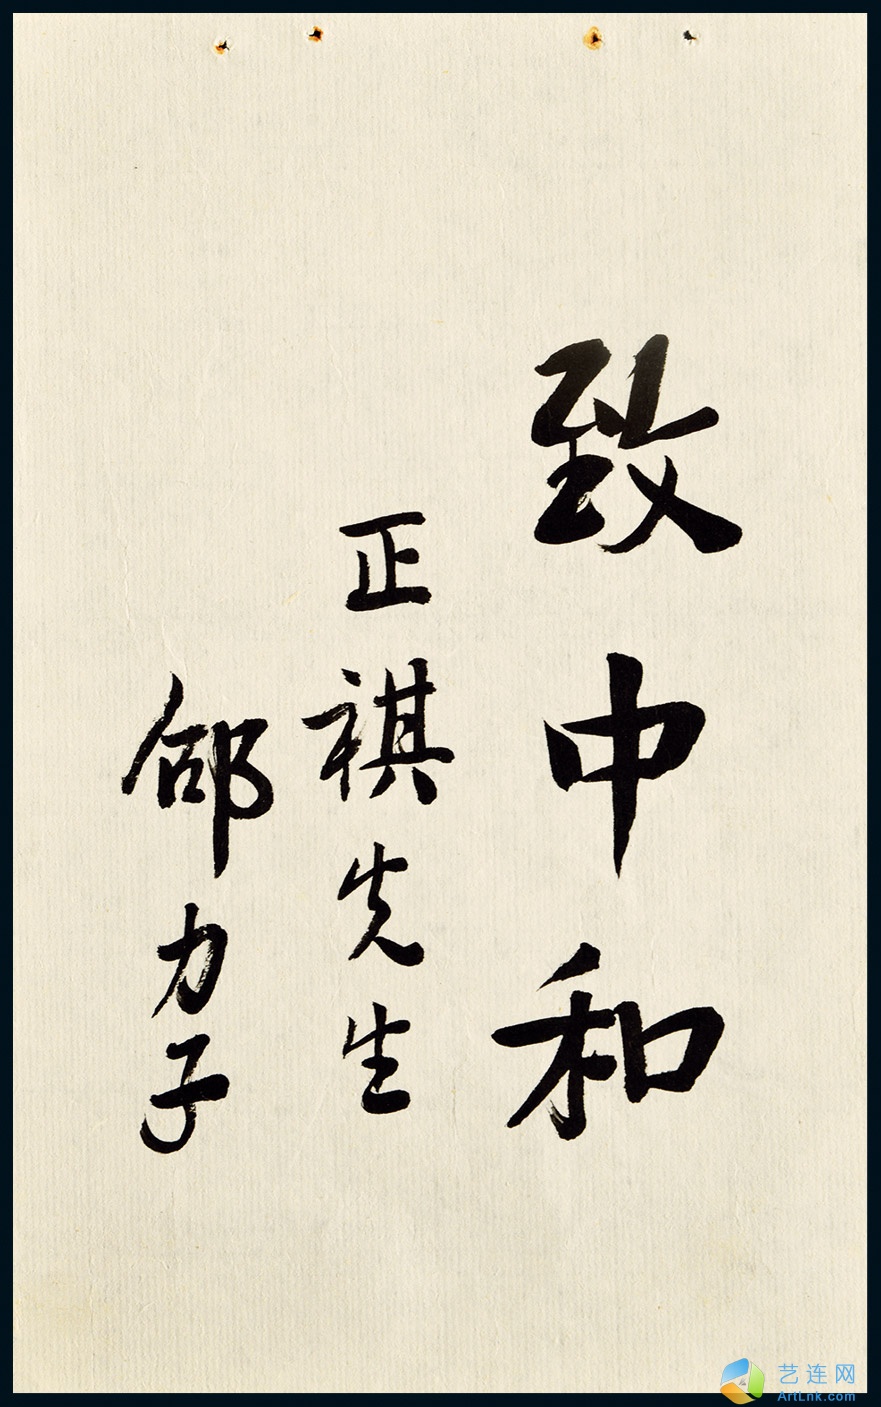 致中和
正祺先生
邵力子
艺连网
ArtLnk.com